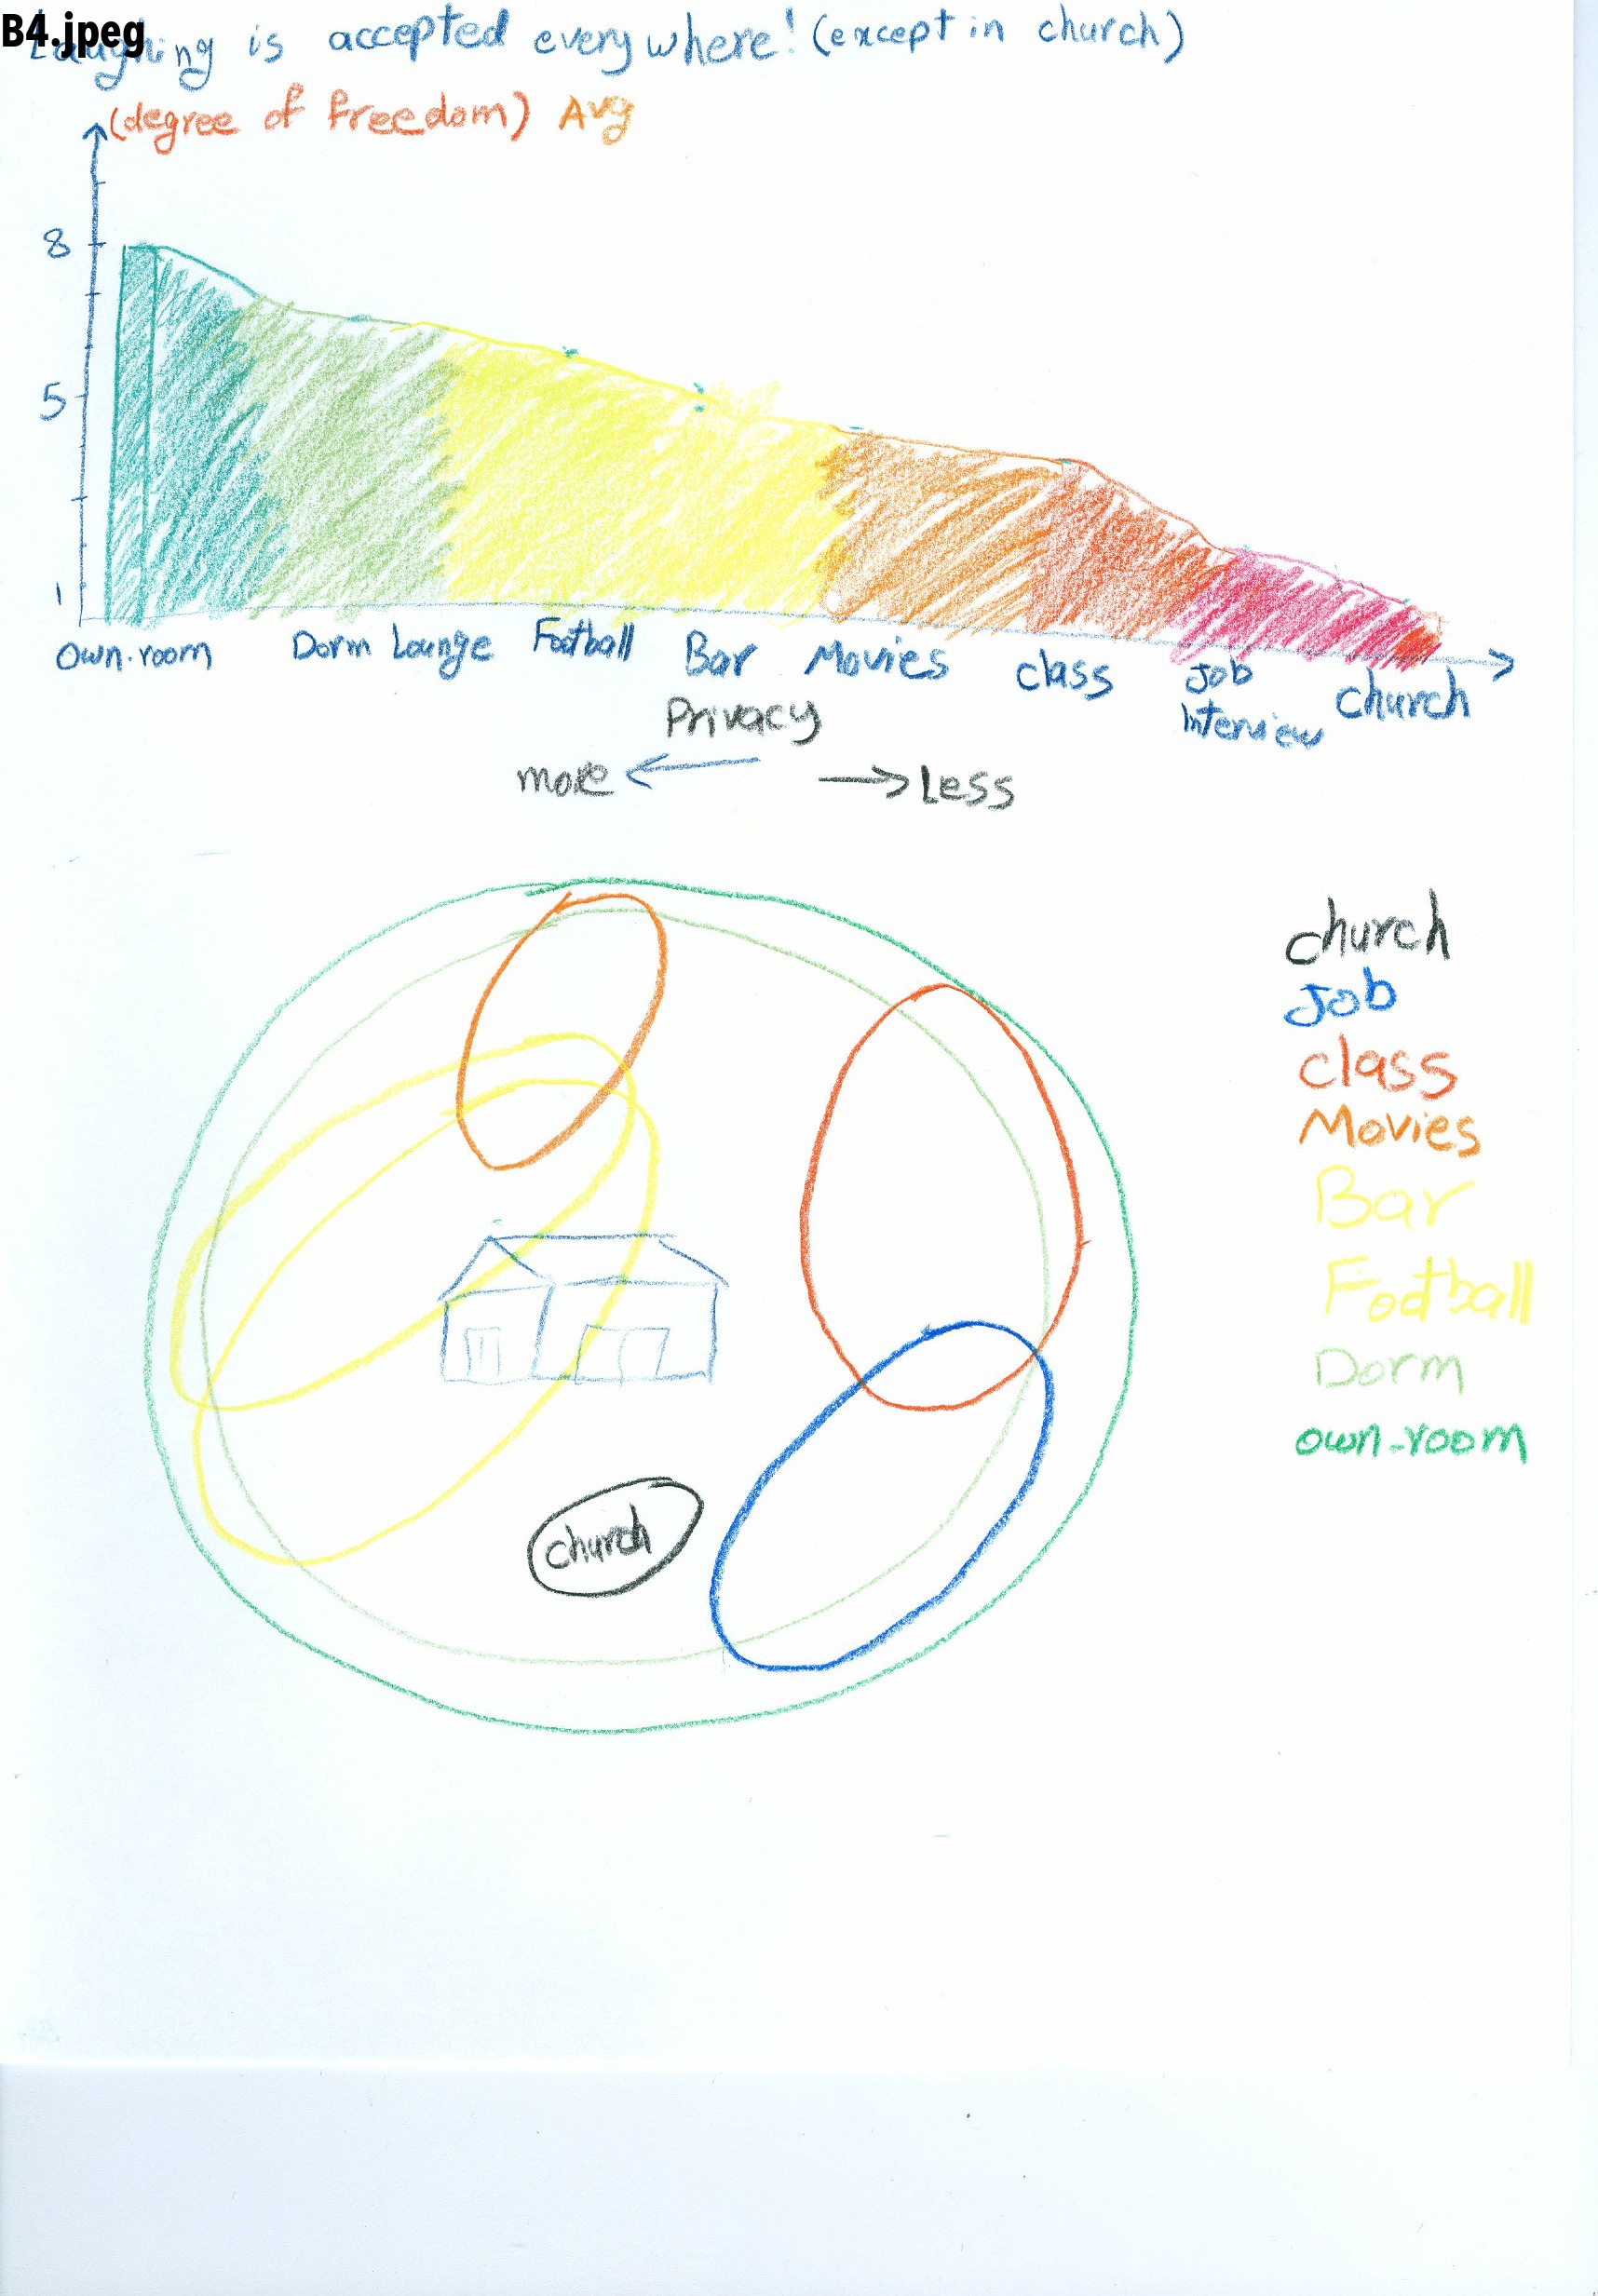 B4.jpeg
Laughing is accepted everywhere! (except in church)
(degree of freedom) Avg
8
5
1
Own-room Dorm Lounge Football Bar Movies class Job Interview church
Privacy
more Less
church
Job
class
Movies
Bar
Football
Dorm
own-room
church